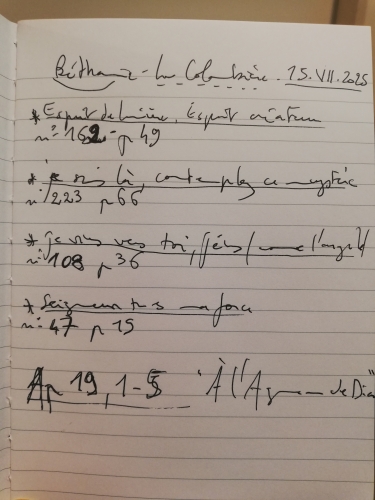 Béthanie - La Colombière. 15.VII.2025
* Esprit de lumière, Esprit créateur
n° 162 - p 49
* je suis là, contempler ce mystère
n° 223 p 66
* je viens vers toi, Jésus /
n° 108 p 36
* Seigneur tu es ma force
n° 47 p 15
Ap 19, 1-5 "À l'Agneau de Dieu"